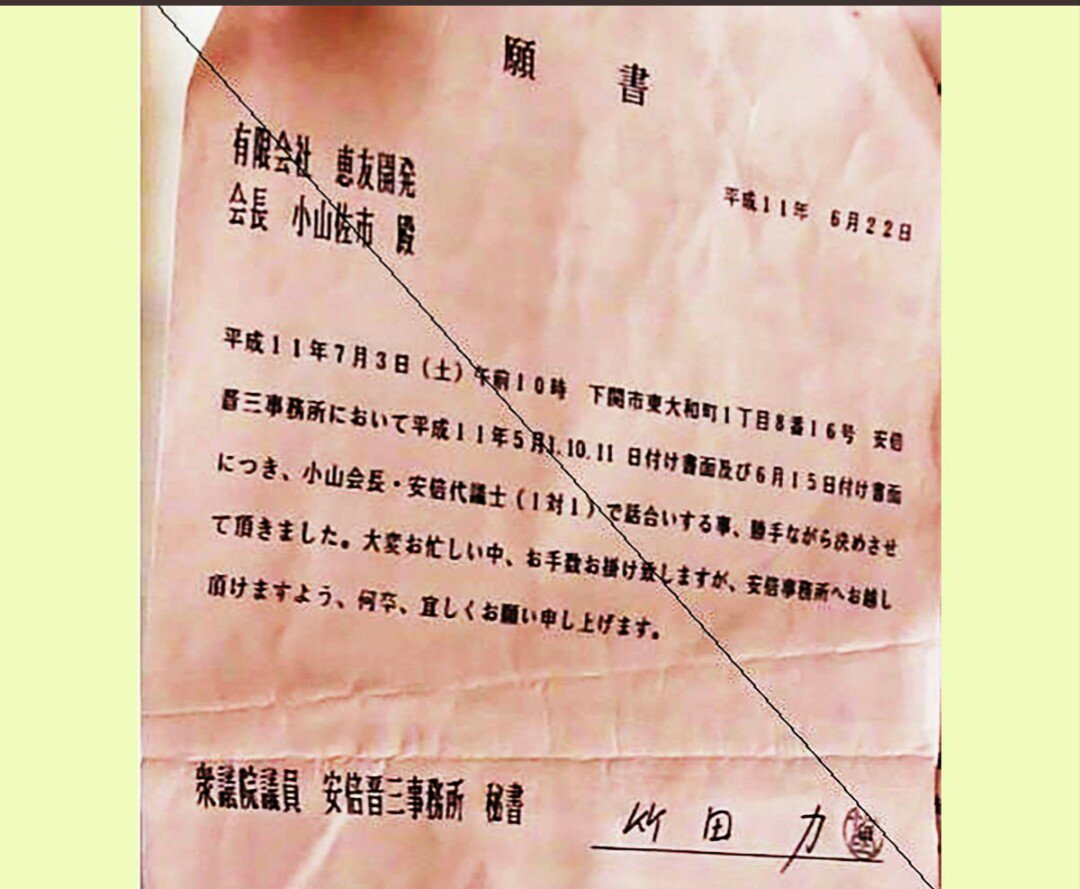 願書
有限会社 恵友開発
会長 小山佐市 殿
平成11年 6月22日
平成11年7月3日(土)午前10時 下関市東大和町1丁目8番16号 安倍
晋三事務所において平成11年5月1.10.11 日付け書面及び6月15日付け書面
につき、小山会長・安倍代議士(1対1)で話合いする事、勝手ながら決めさせ
て頂きました。大変お忙しい中、お手数お掛け致しますが、安倍事務所へお越し
頂けますよう、何卒、宜しくお願い申し上げます。
衆議院議員 安倍晋三事務所 秘書
竹田 力